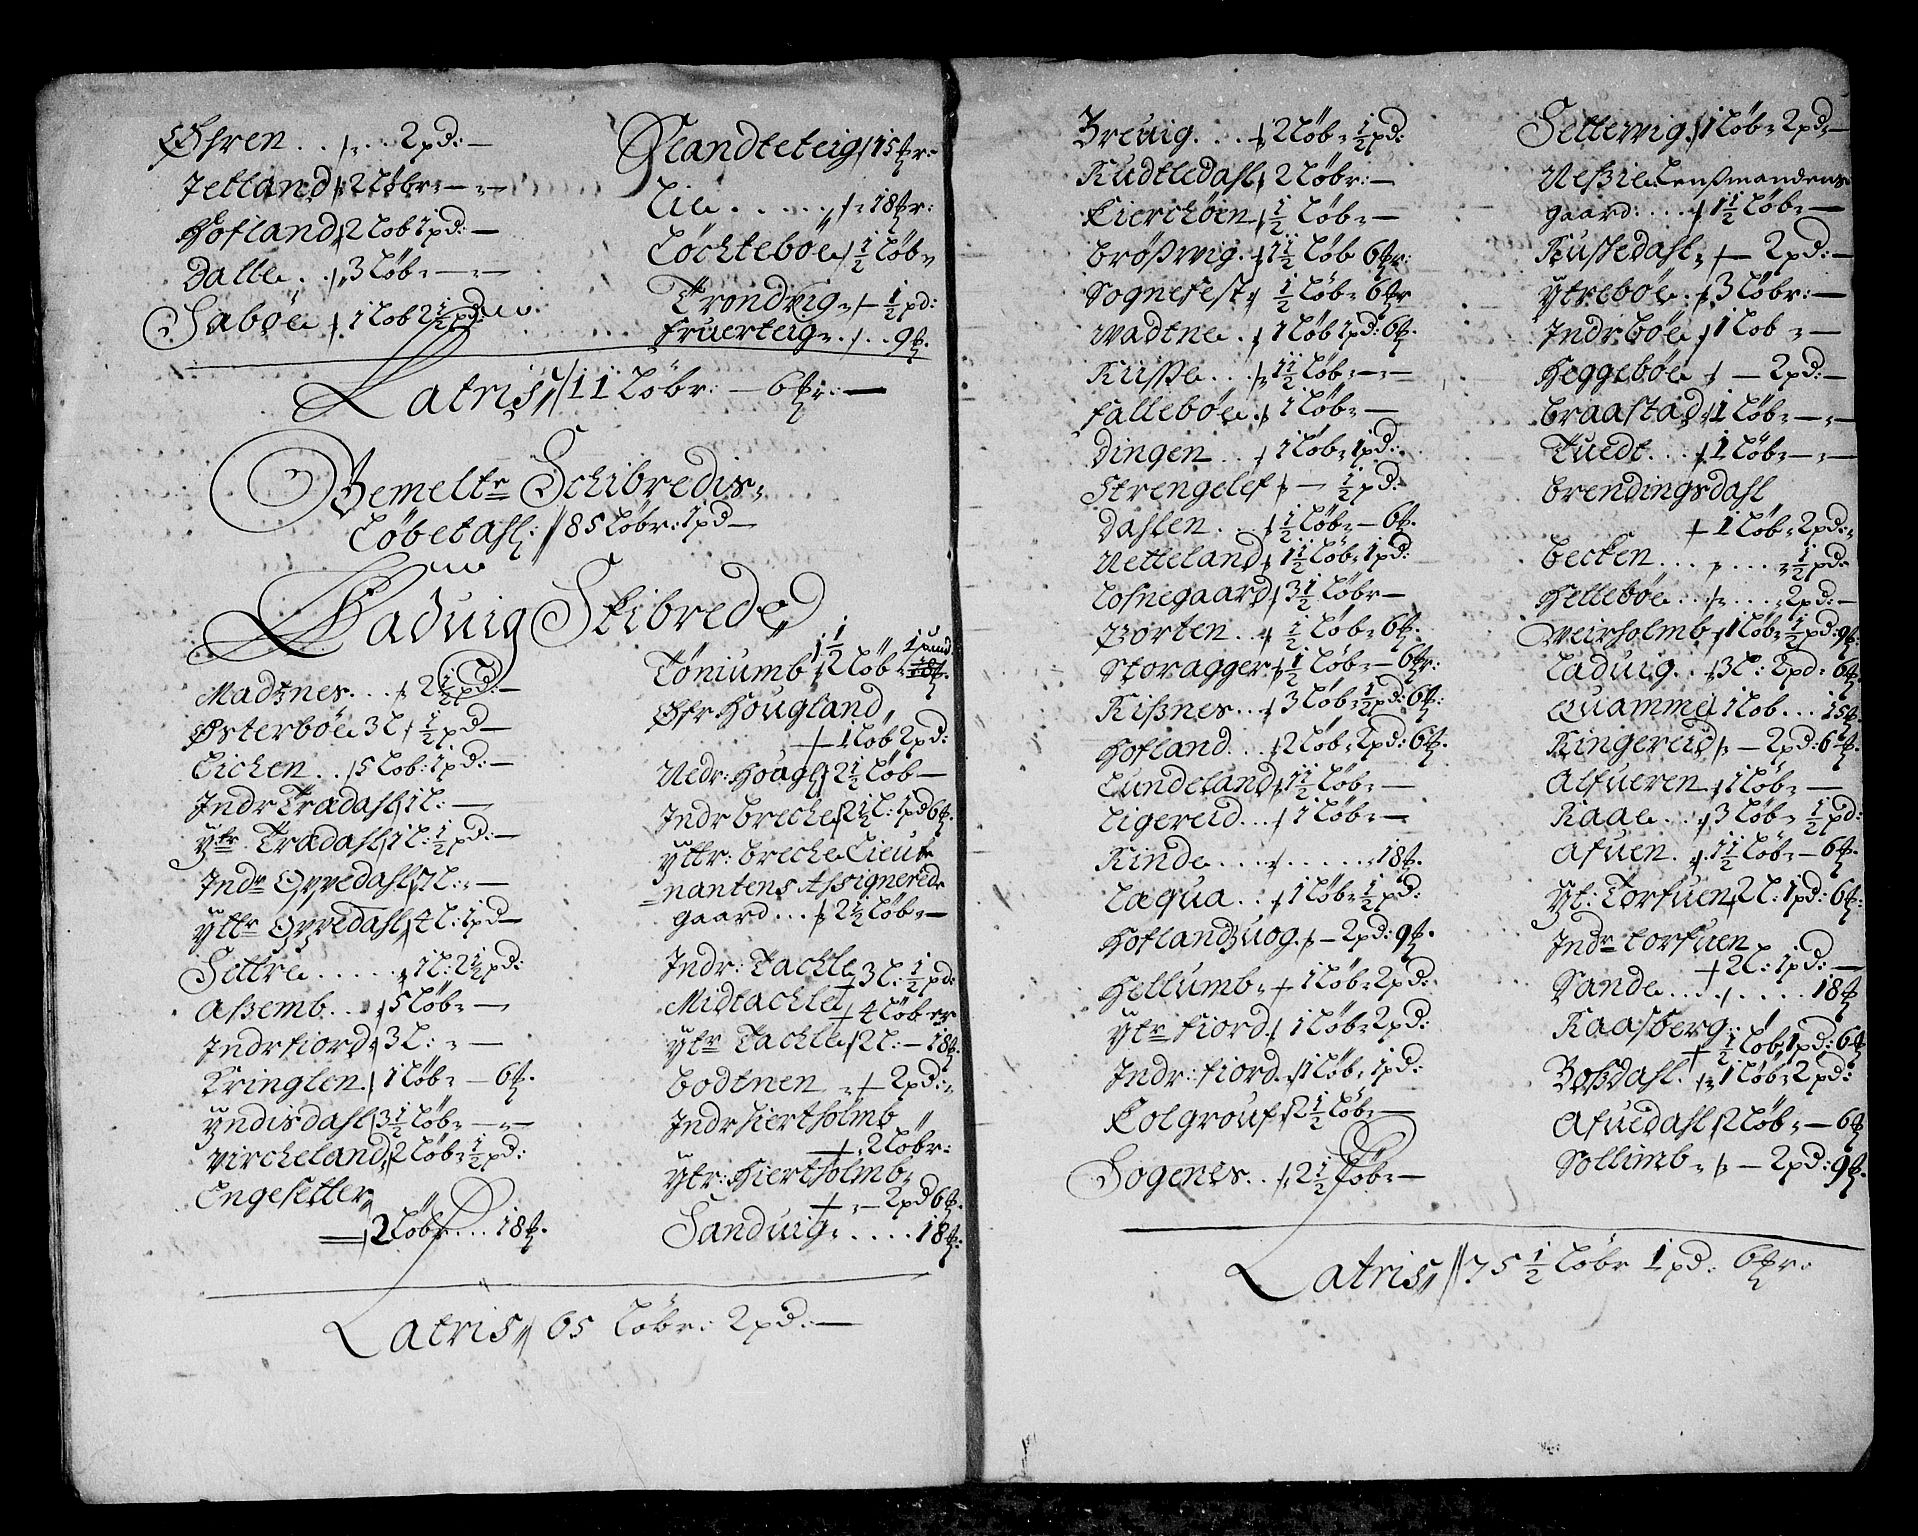 Øhren . . /. . . 2 pd: —
Jetland // 2 løbr: — —
Hofland // 2 løb 1 pd: —
Dalle . . /. 3 løb: — —
Sabøe /. 1 løb 2½ pd:
Slandteteig / 15 ℔r:
Lie . . . . . /. 18 ℔r:
Løchtebøe / ½ løb:
Trondvig /. — ½ pd:
Fruerteig . /. . . 9 ℔.
Latris // 11 løbr: — 6 ℔r: —
Bemelte Schibredis
Løbetahl: // 85 løbr: 1 pd —
Ladvig Skibrede
Madtnes . . . /. 2½ pd: —
Østerbøe 3 l / ½ pd —
Eichen . . / 5 løb: 1 pd: —
Indr Trædahl / 1 l: —
Ytr Trædahl / 1 l: ½ pd: —
Indr Oppedahl / 1 l: —
Yttr Oppedahl / 4 l: 1 pd —
Settre . . . . . / 1 l: 2½ pd:
Aßemb . . . / 5 løb: —
Indr fiord / 3 l: —
Kringlen / 1 løb: — 6 ℔.
Yndisdahl / 3½ løb: — —
Vircheland / 2 løb: ½ pd:
Engesetter
2 løbr . . . 18 ℔.
1½ 1 pund
Tøniumb / 2 løb 18 ℔.
Øfr Hougland
+ 1 løb 2 pd:
Nedr: Hougl / 2½ løb —
Indr Breche / 2½ l: 1 pd 6 ℔.
Yttr: Breche Lieute
nantens Assignerede
gaard . . . /. 2½ løb: —
Indr: Tachle
+ 3 l: ½ pd:
Midtachle
+ 4 løber
Ytr Tachle / 2 l: — 18 ℔.
Bodtnen /. + 2 pd:
Indr Hiertholmb
+ 2 løbr:
Ytr: Hiertholmb
+ — 2 pd 6 ℔.
Sandvig . . . . . 18 ℔.
Latris // 65 løbr: 2 pd: —
Brevig . . . /. 2 løb: ½ pd:
Rudtledahl / 2 løbr: —
Kierchøen / ½ løb: —
Brøßvig . / 1½ løb 6 ℔r:
Sognefest / ½ løb: 6 ℔r
Vadtne . / 1 løb 1 pd: 6 ℔.
Risse . . /. 1½ løb: — —
Fallebøe . / 1 løb: —
Dingen . . / 1 løb: 1 pd:
Strengelef / — ½ pd:
Dahlen . . . / ½ løb: — 6 ℔.
Vetteland / 1½ løb: 1 pd:
Losnegaard / 3½ løbr —
Porten . . / ½ løb: 6 ℔.
Storagger / ½ løb: — 6 ℔r:
Rißnes . . / 3 løb: ½ pd: 6 ℔:
Hofland . . . / 2 løb: 2 pd: 6 ℔.
Lundeland / 1½ løb: —
Ligereid . . . / 1 løb: —
Rinde . . . . / . . . . . . 18 ℔.
Læqua . . : / 1 løb: ½ pd:
Hoflandzuog . / — 2 pd: 9 ℔.
Hellumb . + 1 løb: 2 pd:
Ytr Fiord / 1 løb: 2 pd:
Indr: Fiord . / 1 løb: 1 pd:
Kolgrouf / 2½ løb: —
Sogenes . . / 2½ løb: —
Settervig / 1 løb: 2 pd: —
Neßie Lenßmandens
gaard: . . . / 1½ løb: —
Risledahl . /. — 2 pd: —
Ytrebøe . / 3 løbr: —
Indrbøe / 1 løb: —
Heggebøe / — 2 pd: —
Braastad / 1 løb: — —
Tuedt . . . / 1 løb: — —
Brendingsdahl
+ 1 løb: 2 pd:
Becken . . . / . . . . ½ pd:
Hellebøe . . /. . . . 2 pd: —
Veirholmb / 1 løb: ½ pd: 9 ℔.
Ladvig . . / 3 l: 2 pd: 6 ℔.
Quamme / 1 løb . . . 15 ℔.
Ringereid / — 2 pd: 6 ℔.
Alfueren / 1 løb: —
Raae . . . / 3 løb: ½ pd:
Afuen . / 1½ løb: — 6 ℔.
Yt: Torfuen / 2 l: 1 pd: 6 ℔:
Indr Torfuen
+ 2 l: 1 pd: —
Sande . . . / . . . . . 18 ℔
Raasberg
+ ½ løb: 1 pd: 6 ℔
Boßdahl . / 1 løb: 2 pd:
Afuedahl / 2 løb: — 6 ℔
Sollimb . /. — 2 pd: 9 ℔.
Latris // 75½ løbr 1 pd: 6 ℔r: